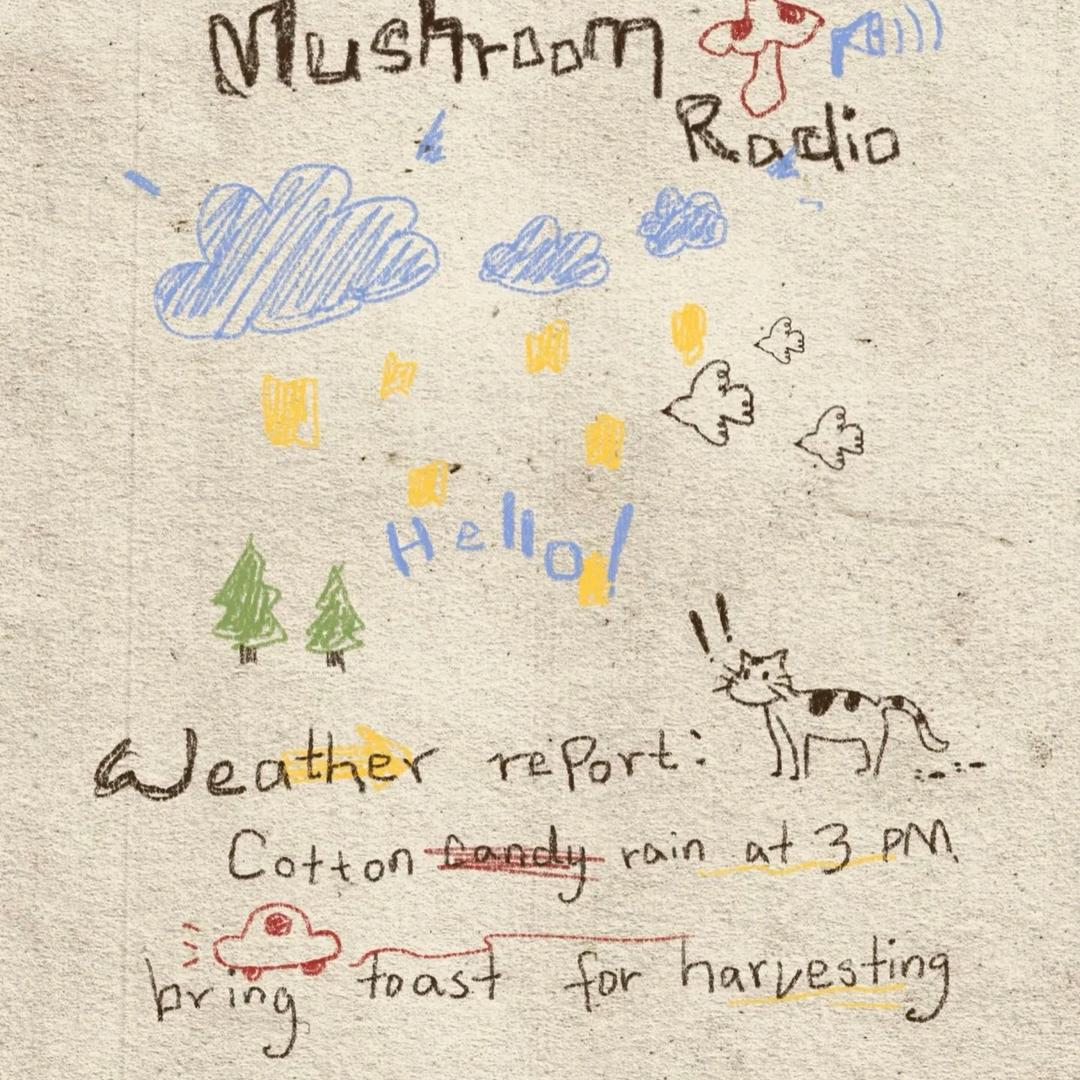 Mushroom
Radio
Hello!
!!
Weather report:
Cotton candy rain at 3 PM
bring toast for harvesting